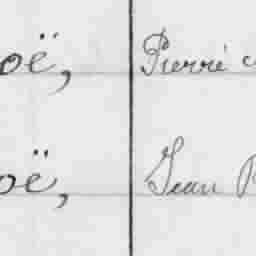 oë, Pierré
oë, Jean